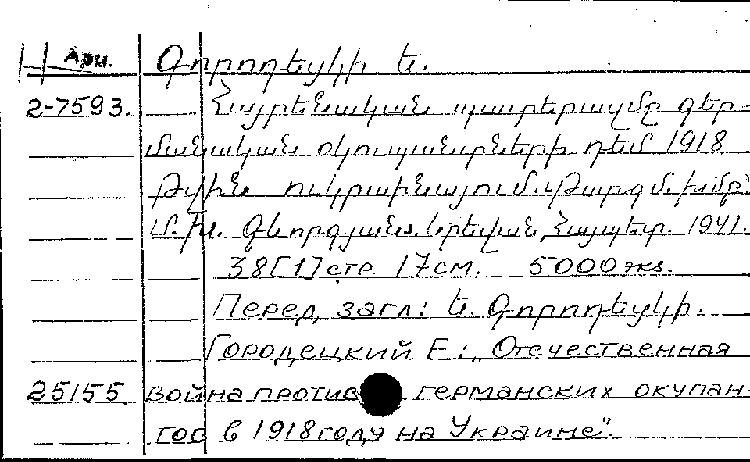 Арм. Գորոդեցկի Ե.
2-7593. Հայրենական պատերազմը գեր-
մանական օկուպանտների դեմ 1918
թվին ուկրաինայում. Թարգմ. խմբ.
Մ. Խ. Գևորգյան. Երևան, Հայպետ. 1941.
38[1] стр. 17см. 5000 экз.
Перед. загл: Ե. Գորոդեցկի.
Городецкий Е: „Отечественная
25155 война против германских окупан-
тов в 1918 году на Украине".